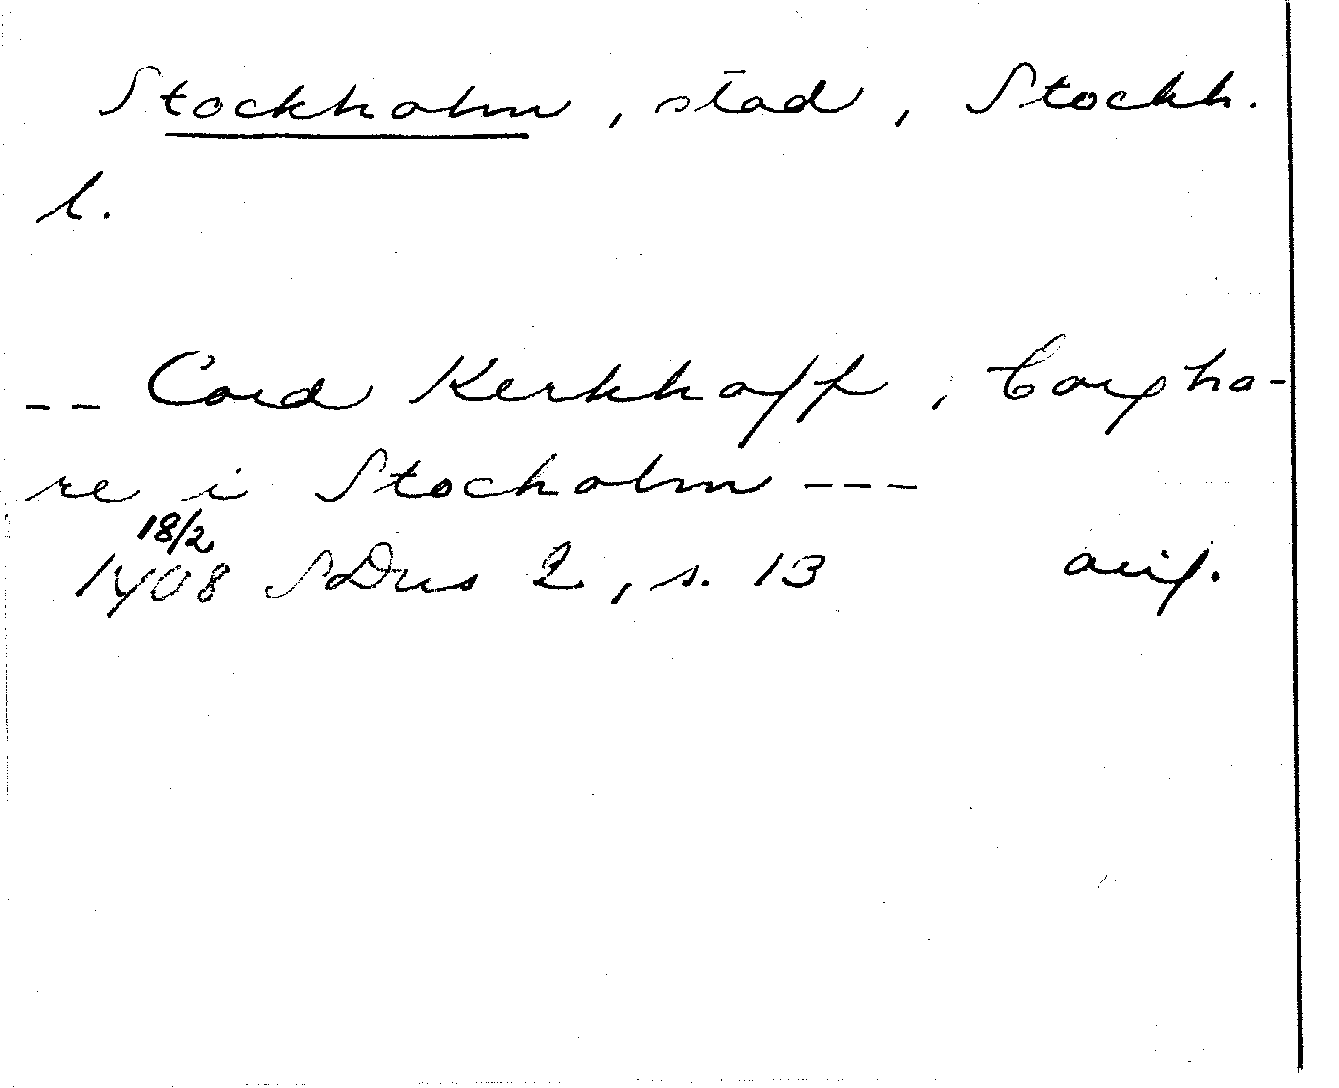 Stockholm, stad, Stockh.
l.
-- Cord Kerkhoff, borgha-
re i Stocholm ---
18/2
1408 SDns 2, s. 13 avs.